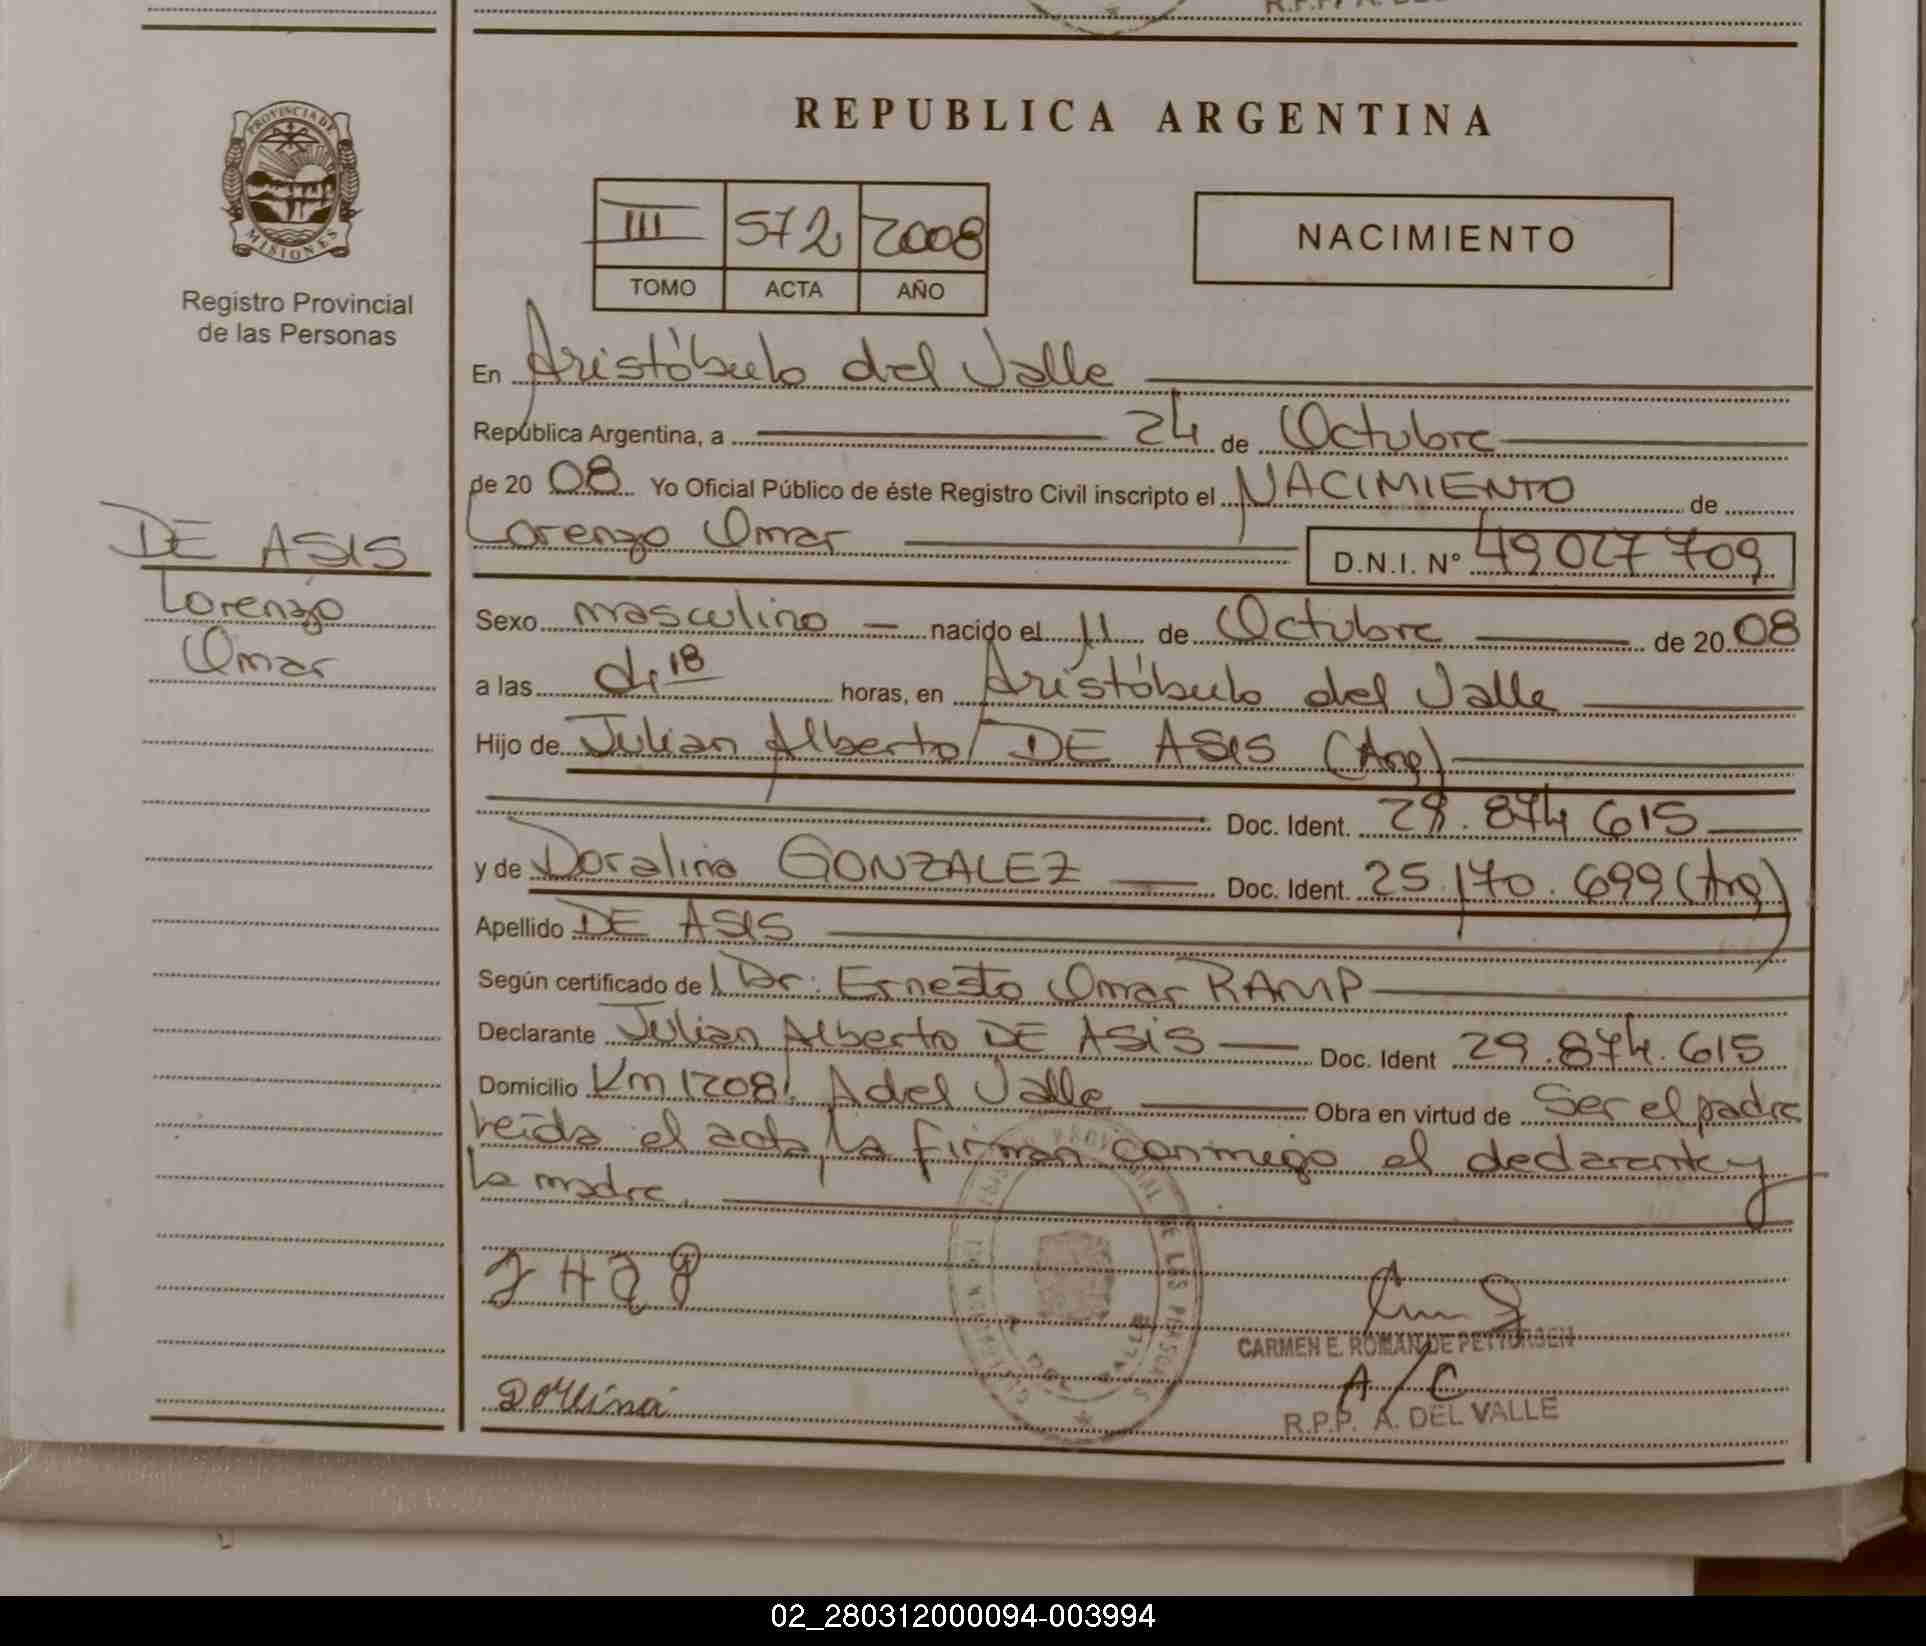 REPUBLICA ARGENTINA
PROVINCIA DE
MISIONES
Registro Provincial
de las Personas
III 572 2008
TOMO ACTA AÑO
NACIMIENTO
En Aristóbulo del Valle
República Argentina, a 24 de Octubre
de 20 08 Yo Oficial Público de éste Registro Civil inscripto el NACIMIENTO de
Lorenzo Omar D.N.I. N° 49 027 709
DE ASIS
Lorenzo
Omar
Sexo masculino nacido el 11 de Octubre de 20 08
a las 18 horas, en Aristóbulo del Valle
Hijo de Julian Alberto DE ASIS (Arg)
Doc. Ident. 29.874 615
y de Doralina GONZALEZ Doc. Ident. 25.170.699 (Arg)
Apellido DE ASIS
Según certificado de Dr. Ernesto Omar RAMP
Declarante Julian Alberto DE ASIS Doc. Ident 29.874.615
Domicilio Km 1208 A del Valle Obra en virtud de Ser el padre
Leída el acta, la firman conmigo el declarante y
la madre.
CARMEN E. ROMAN DE PETTURSEN
A/C
R.P.P. A. DEL VALLE
02_280312000094-003994